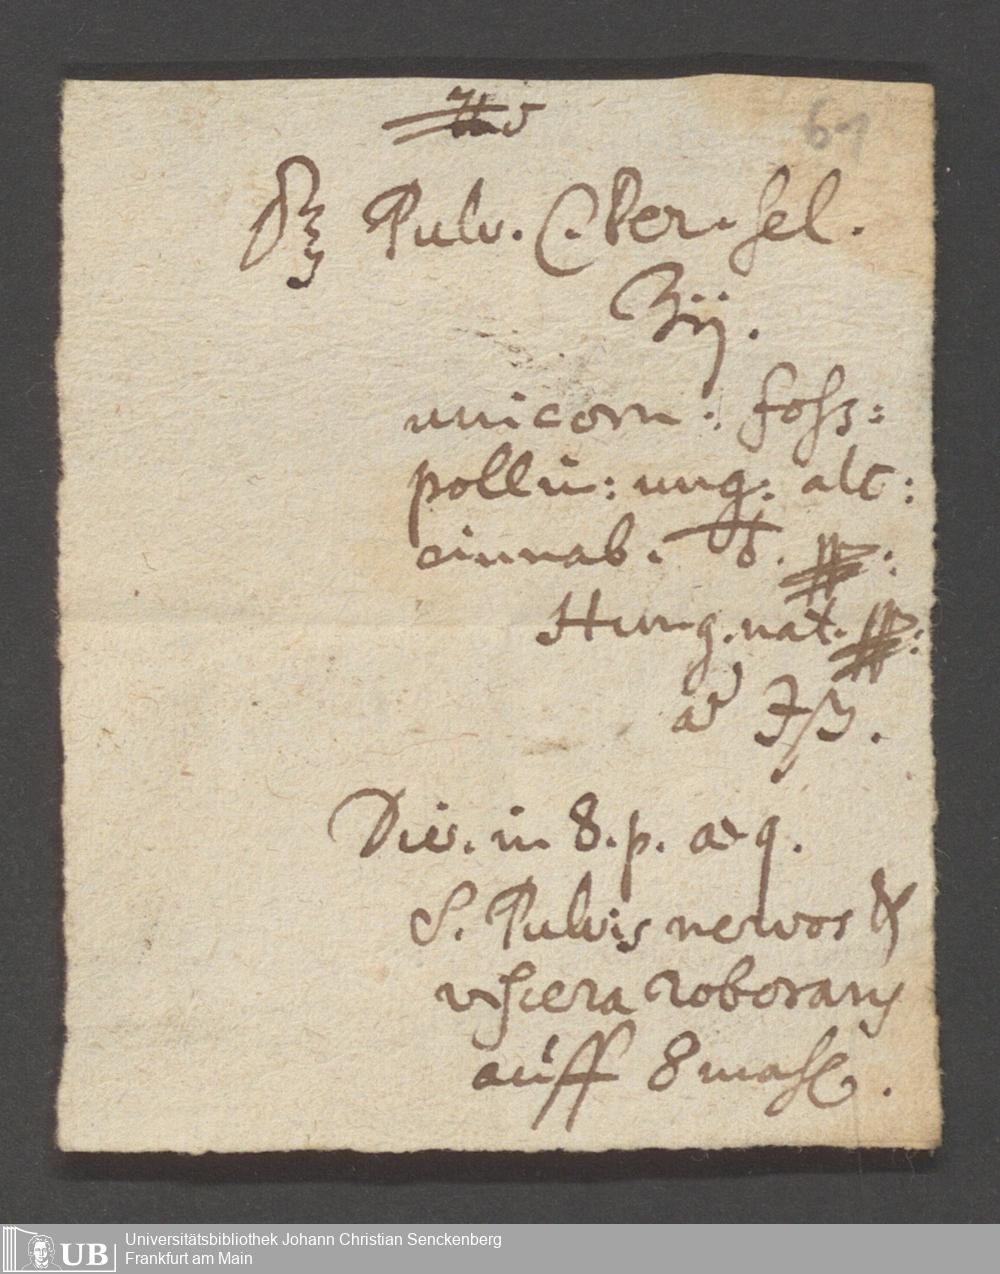 61
℞ Pulv. C. Per. sel.
ʒij.
unicorn: foss:
pollin: ung: alc:
cinnab. ♁.
Hung. nat.
ad ʒß.
Div. in 8. p. aeq.
S. Pulvis nervos &
viscera roborans
auff 8 mahl.
UB Universitätsbibliothek Johann Christian Senckenberg
Frankfurt am Main